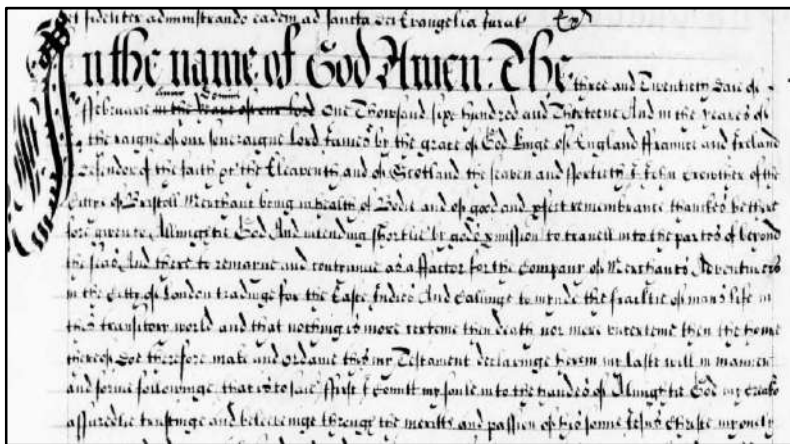 et fideliter administrando eadem ad sancta dei Evangelia jurat
In the name of God Amen. The three and Twentieth daie of
anno Domini
Februarie in the yeare of our lord One Thousand sixe hundred and Thirteene And in the yeares of
the raigne of our soveraigne Lord James by the grace of God kinge of England ffrannce and Ireland
Defendor of the faith &c the Eleaventh and of Scotland the seaven and ffortieth I John Crowther of the
Cittye of Bristoll Merchant being in health of Bodie and of good and pfect remembrance thanckes be there
fore given to Allmightie God And intending shortlie by gods pmission to travell into the partes of beyond
the seas And there to remayne and contynue as a ffactor for the Company of Merchants Adventurers
in the Citty of London tradinge for the Easte Indies And callinge to mynde the frailtie of mans life in
this transitory world and that nothing is more certeine then death nor more uncerteine then the howre
thereof doe therefore make and ordaine this my Testament declaringe herein my laste will in manner
and forme followinge that is to saie ffirst I comitt my soule into the handes of Almightie God my Creator
assuredlie trustinge and beleevinge through the meritts and passion of his sonne Jesus Christe my only